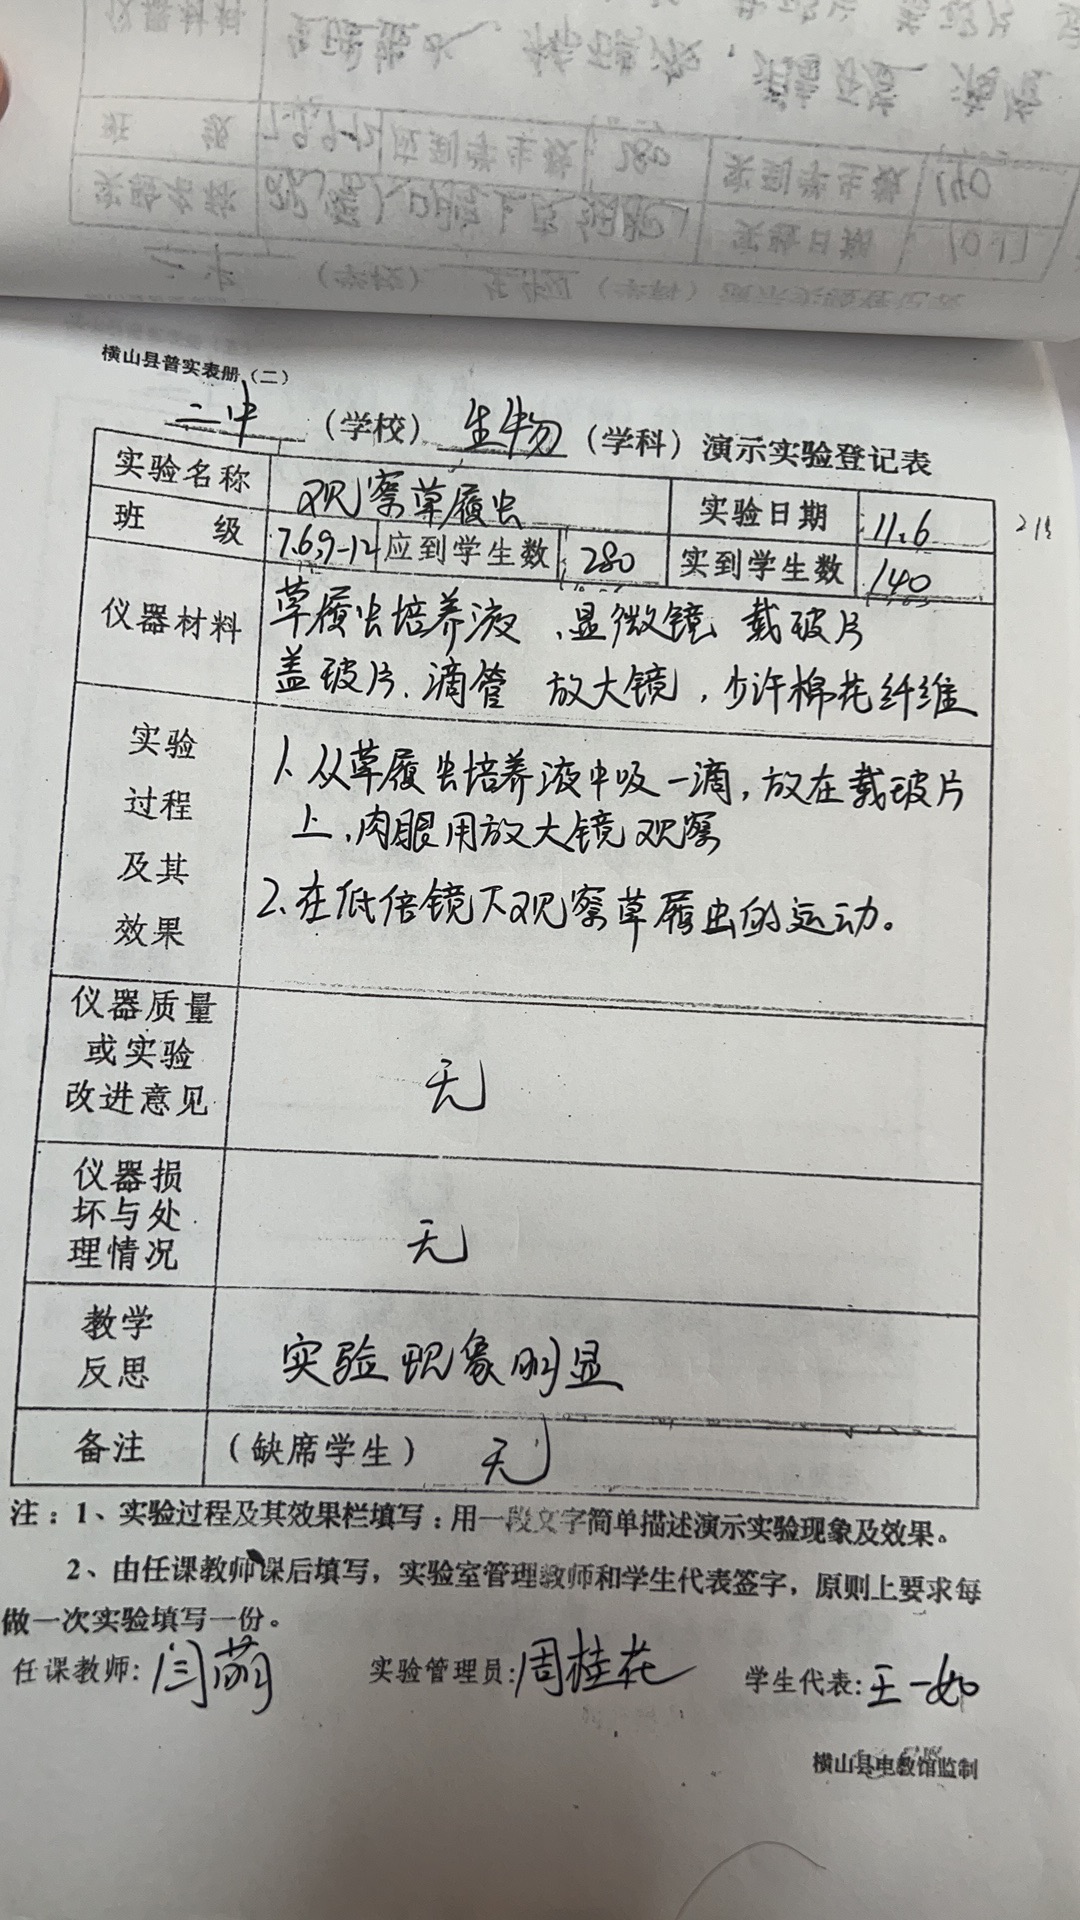 横山县普实表册（二）
二中（学校）生物（学科）演示实验登记表
实验名称 观察草履虫 实验日期 11.6
班级 7.6,9-12 应到学生数 280 实到学生数 140
仪器材料 草履虫培养液、显微镜 载玻片
盖玻片、滴管 放大镜，少许棉花纤维
实验
过程
及其
效果
1、从草履虫培养液中吸一滴，放在载玻片
上，肉眼用放大镜观察
2、在低倍镜下观察草履虫的运动。
仪器质量
或实验
改进意见
无
仪器损
坏与处
理情况
无
教学
反思
实验现象明显
备注 （缺席学生） 无
注：1、实验过程及其效果栏填写：用一段文字简单描述演示实验现象及效果。
2、由任课教师课后填写，实验室管理教师和学生代表签字，原则上要求每
做一次实验填写一份。
任课教师：闫萌 实验管理员：周桂花 学生代表：王一如
横山县电教馆监制